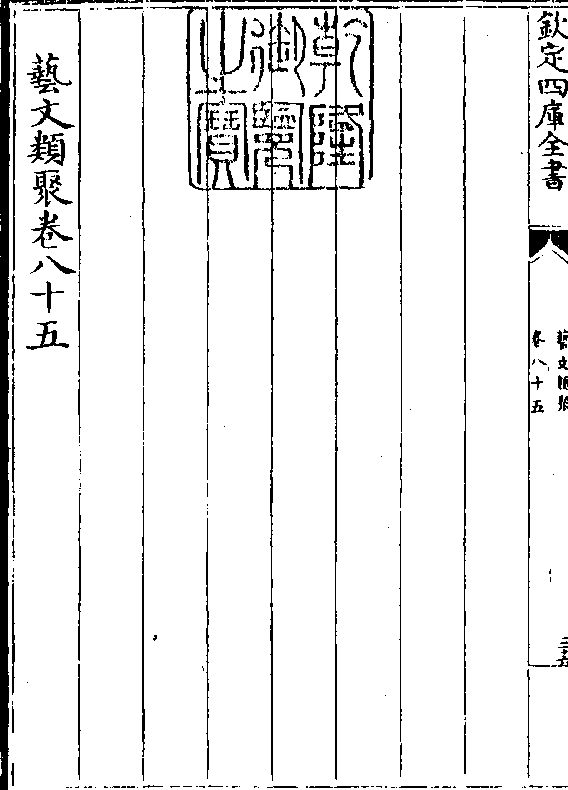 欽定四庫全書
藝文類聚
卷八十五
乾隆
御覽
之寶
藝文類聚卷八十五